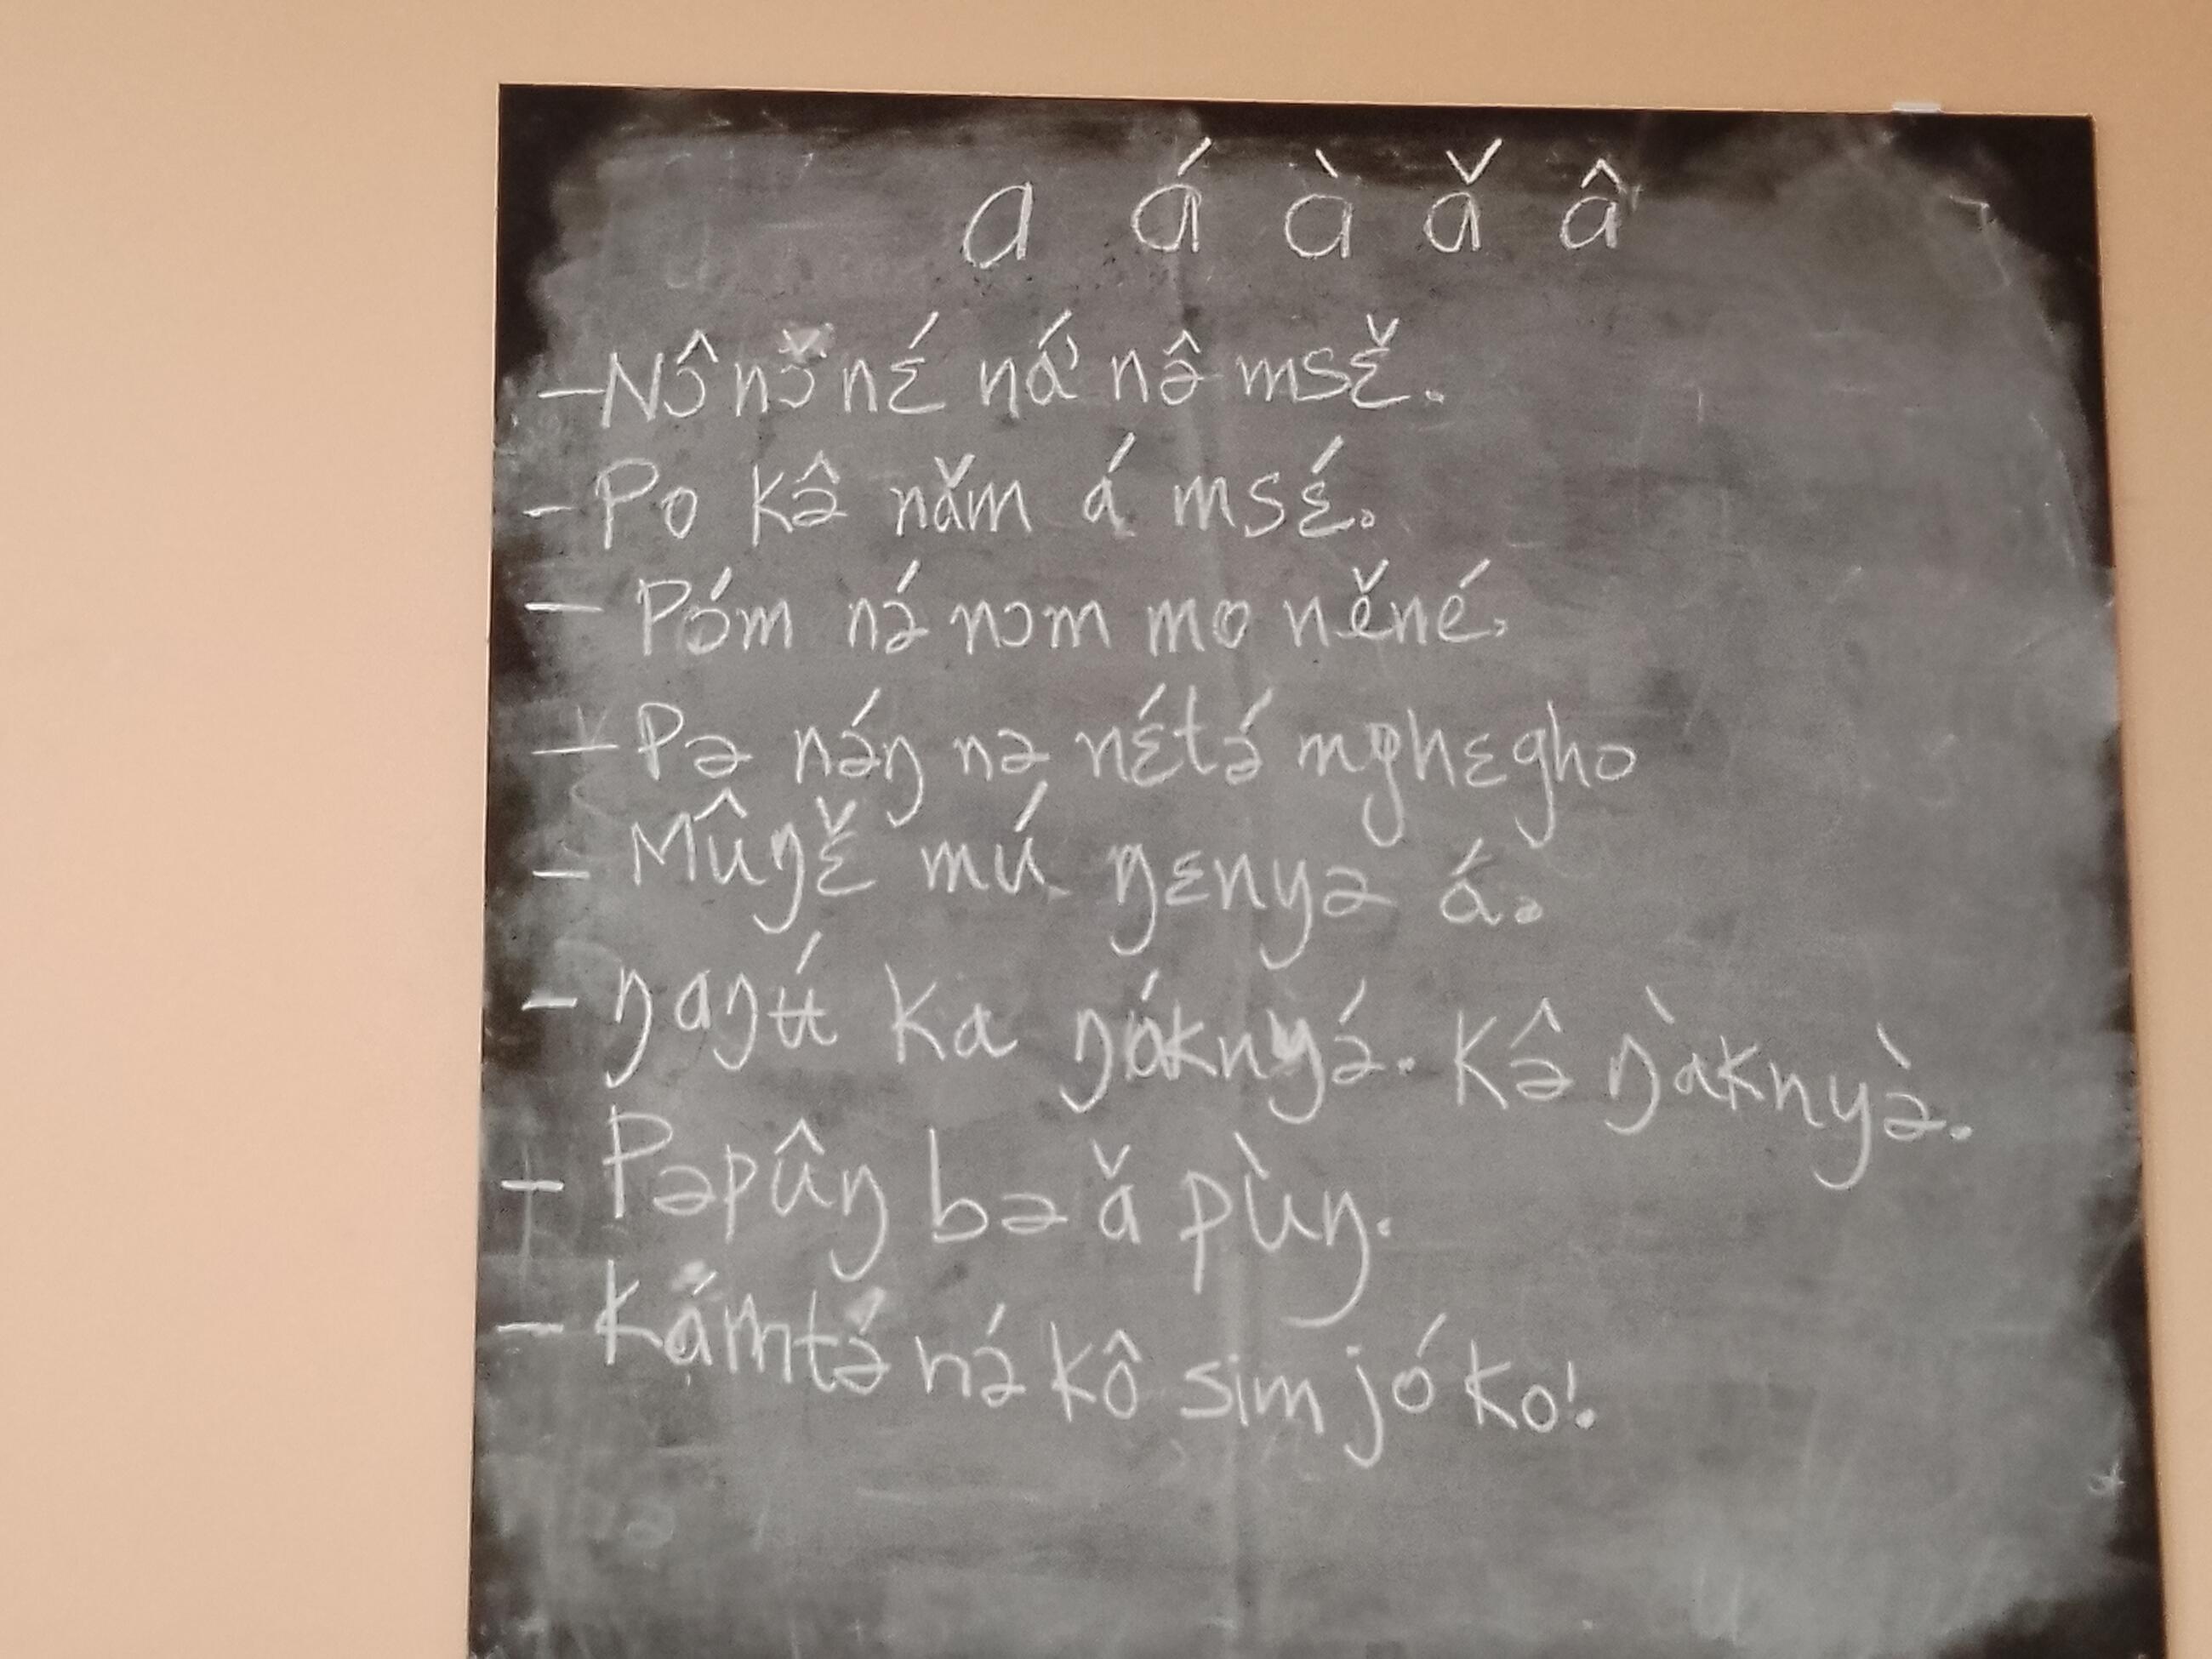 a á à ǎ â
– Nɔ̂ nɔ̌ nɛ́ ŋá' nə̂ msɛ̌.
– Po kə̂ nǎm á msɛ́.
– Póm nə́ nɔm mo něné.
– Pə nə́ŋ nə nɛ́tə́ mghɛgho
– Mûŋɛ̌ mú ŋɛnyə á.
– ŋaŋʉ́ ka ŋáknyə́. Kə̂ ŋàknyə̀.
– Pəpûŋ bə ǎ pùŋ.
– Kámtə́ nə́ kô sim jó ko!